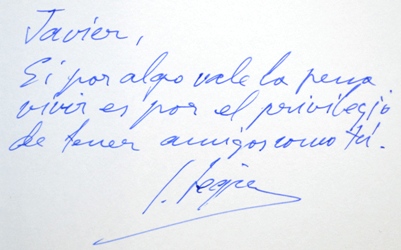 Javier,
Si por algo vale la pena
vivir es por el privilegio
de tener amigos como tú.